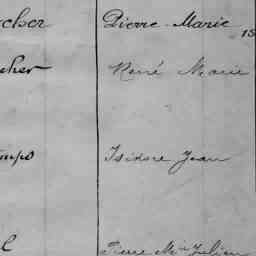 cher Pierre-Marie
15
cher René Marie
mps Isidore Jean
l Pierre Mie Julien